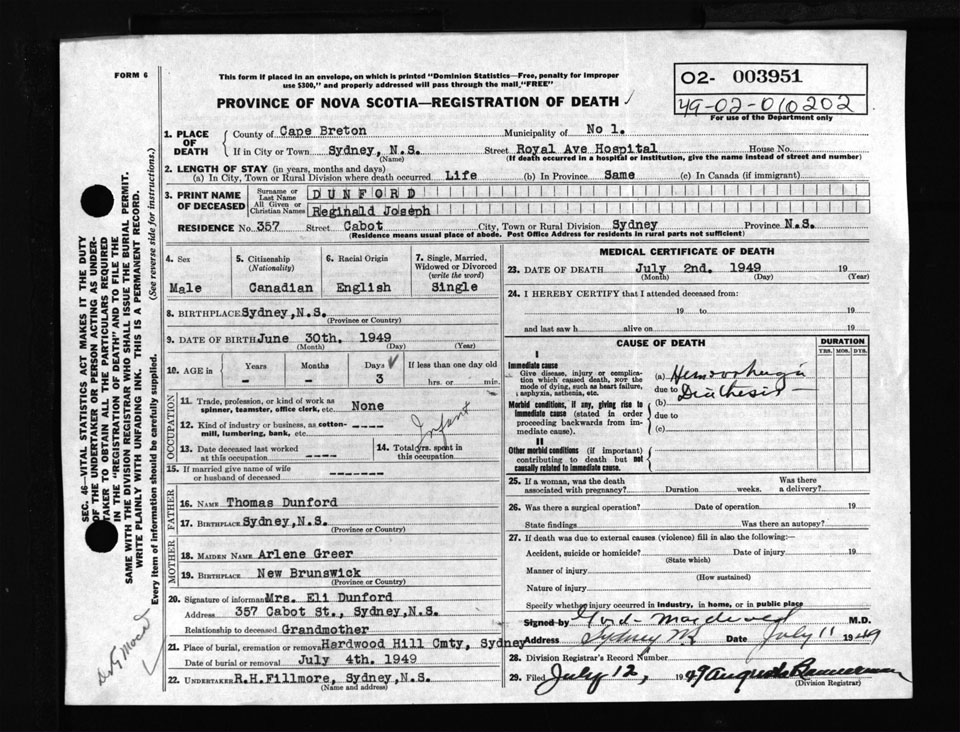 FORM 6
This form if placed in an envelope, on which is printed "Dominion Statistics—Free, penalty for improper
use $300," and properly addressed will pass through the mail "FREE"
O2- 003951
49-02-010202
For use of the Department only
PROVINCE OF NOVA SCOTIA—REGISTRATION OF DEATH
1. PLACE OF DEATH
County of Cape Breton Municipality of No 1.
If in City or Town Sydney, N.S. Street Royal Ave Hospital House No.
(Name) (If death occurred in a hospital or institution, give the name instead of street and number)
2. LENGTH OF STAY (in years, months and days)
(a) In City, Town or Rural Division where death occurred Life (b) In Province Same (c) In Canada (if immigrant)
3. PRINT NAME OF DECEASED
Surname or Last Name DUNFORD
All Given or Christian Names Reginald Joseph
RESIDENCE No. 357 Street Cabot City, Town or Rural Division Sydney Province N.S.
(Residence means usual place of abode. Post Office Address for residents in rural parts not sufficient)
4. Sex
Male
5. Citizenship
(Nationality)
Canadian
6. Racial Origin
English
7. Single, Married,
Widowed or Divorced
(write the word)
Single
8. BIRTHPLACE Sydney, N.S.
(Province or Country)
9. DATE OF BIRTH June 30th. 1949
(Month) (Day) (Year)
10. AGE in
Years Months Days If less than one day old
- - 3 hrs. or min.
OCCUPATION
11. Trade, profession or kind of work as
spinner, teamster, office clerk, etc. None
12. Kind of industry or business, as cotton-
mill, lumbering, bank, etc. -----
Infant
13. Date deceased last worked
at this occupation ----
14. Total yrs. spent in
this occupation
15. If married give name of wife
or husband of deceased -------
FATHER
16. NAME Thomas Dunford
17. BIRTHPLACE Sydney, N.S.
(Province or Country)
MOTHER
18. MAIDEN NAME Arlene Greer
19. BIRTHPLACE New Brunswick
(Province or Country)
20. Signature of informant Mrs. Eli Dunford
Address 357 Cabot St., Sydney, N.S.
Relationship to deceased Grandmother
21. Place of burial, cremation or removal Hardwood Hill Cmty, Sydney
Date of burial or removal July 4th. 1949
22. UNDERTAKER R.H.Fillmore, Sydney, N.S.
(Name and address)
MEDICAL CERTIFICATE OF DEATH
23. DATE OF DEATH July 2nd. 1949 19
(Month) (Day) (Year)
24. I HEREBY CERTIFY that I attended deceased from:
19 to 19
and last saw h alive on 19
CAUSE OF DEATH
DURATION
YRS. MOS. DYS.
I
Immediate cause
Give disease, injury or complica-
tion which caused death, not the
mode of dying, such as heart failure,
asphyxia, asthenia, etc.
(a) Hemorrhagic
due to Diathesis
Morbid conditions, if any, giving rise to
immediate cause (stated in order
proceeding backwards from im-
mediate cause).
(b)
due to
(c)
II
Other morbid conditions (if important)
contributing to death but not
causally related to immediate cause.
25. If a woman, was the death
associated with pregnancy? Duration weeks. Was there
a delivery?
26. Was there a surgical operation? Date of operation 19
State findings Was there an autopsy?
27. If death was due to external causes (violence) fill in also the following:—
Accident, suicide or homicide? Date of injury 19
(State which)
Manner of injury
(How sustained)
Nature of injury
Specify whether injury occurred in industry, in home, or in public place
Signed by M.D.
Address Sydney NS Date July 11 1949
28. Division Registrar's Record Number
29. Filed July 12, 1949
(Division Registrar)
SEC. 46—VITAL STATISTICS ACT MAKES IT THE DUTY
OF THE UNDERTAKER OR PERSON ACTING AS UNDER-
TAKER TO OBTAIN ALL THE PARTICULARS REQUIRED
IN THE "REGISTRATION OF DEATH" AND TO FILE THE
SAME WITH THE DIVISION REGISTRAR WHO SHALL ISSUE THE BURIAL PERMIT.
WRITE PLAINLY WITH UNFADING INK. THIS IS A PERMANENT RECORD.
Every item of information should be carefully supplied. (See reverse side for instructions.)